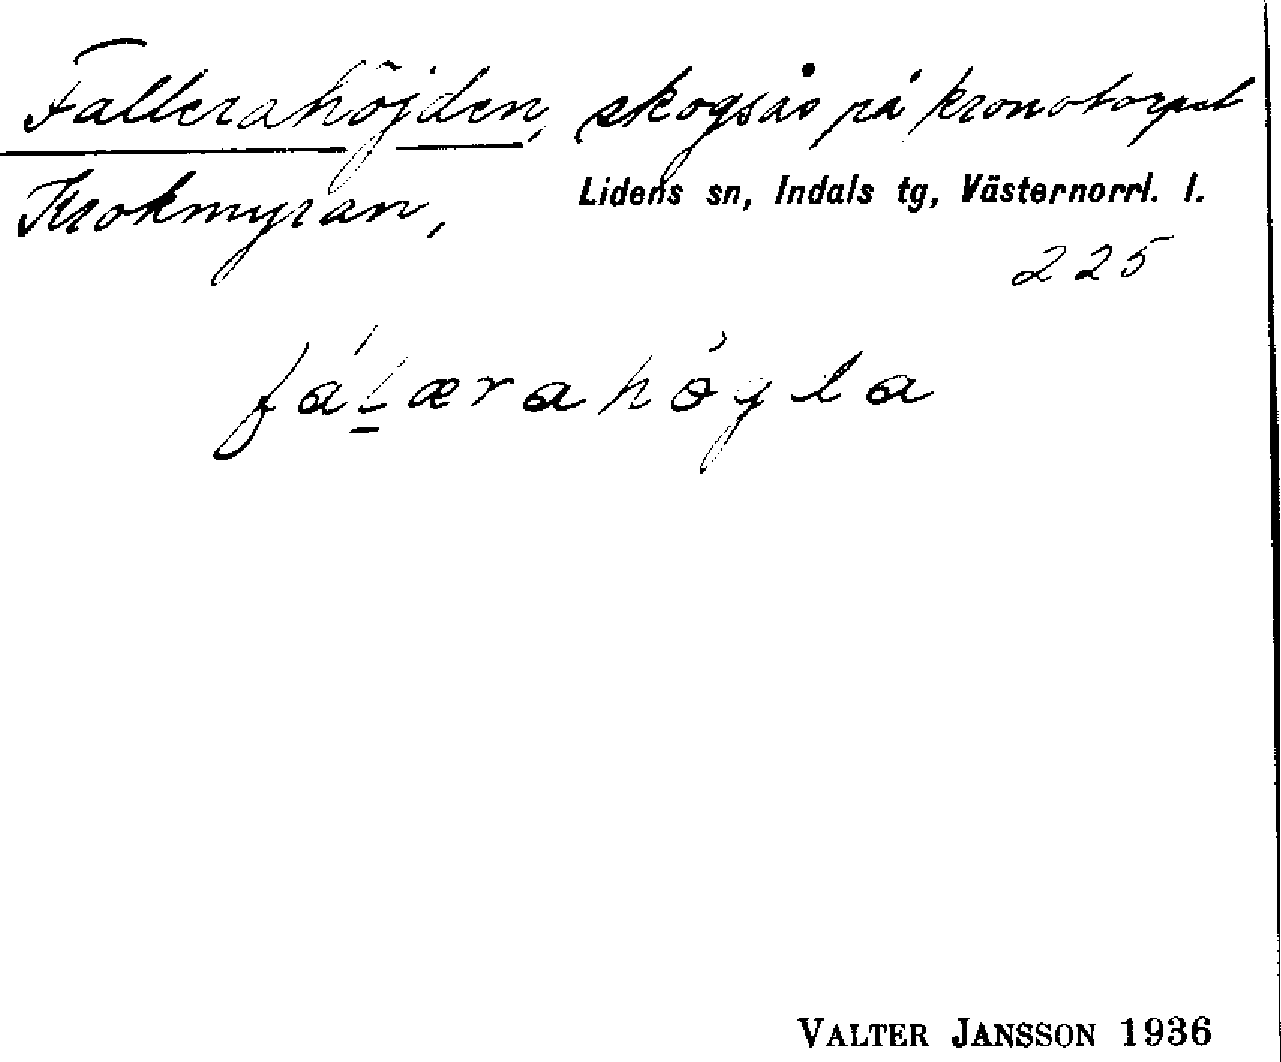 Fallerahöjden, skogsås på kronotorpet
Krokmyran, Lidens sn, Indals tg, Västernorrl. l.
225
fálærahögla
VALTER JANSSON 1936